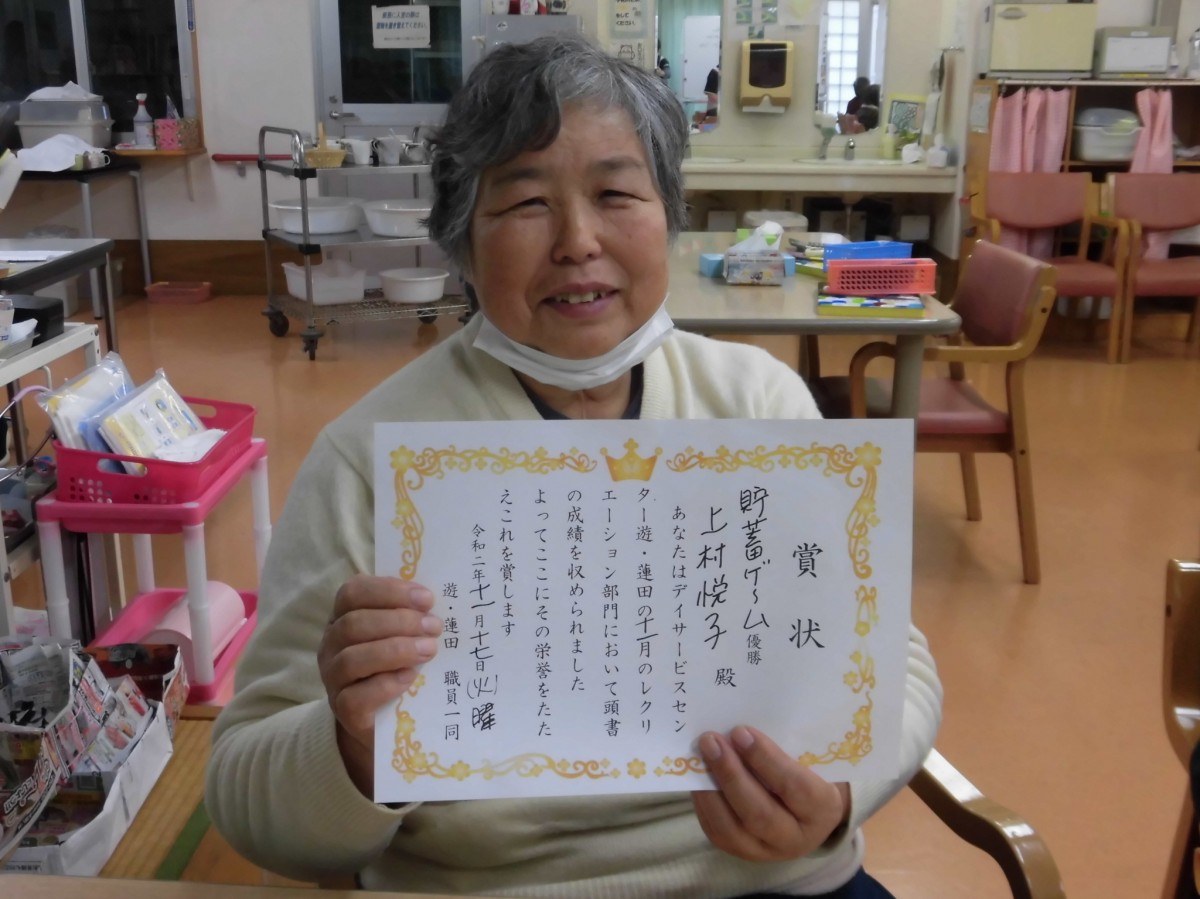 賞状
貯蓄ゲーム優勝
上村悦子 殿
あなたはデイサービスセン
ター遊・蓮田の十一月のレクリ
エーション部門において頭書
の成績を収められました
よってここにその栄誉をたた
えこれを賞します
令和二年十一月十七日(火)曜
遊・蓮田 職員一同